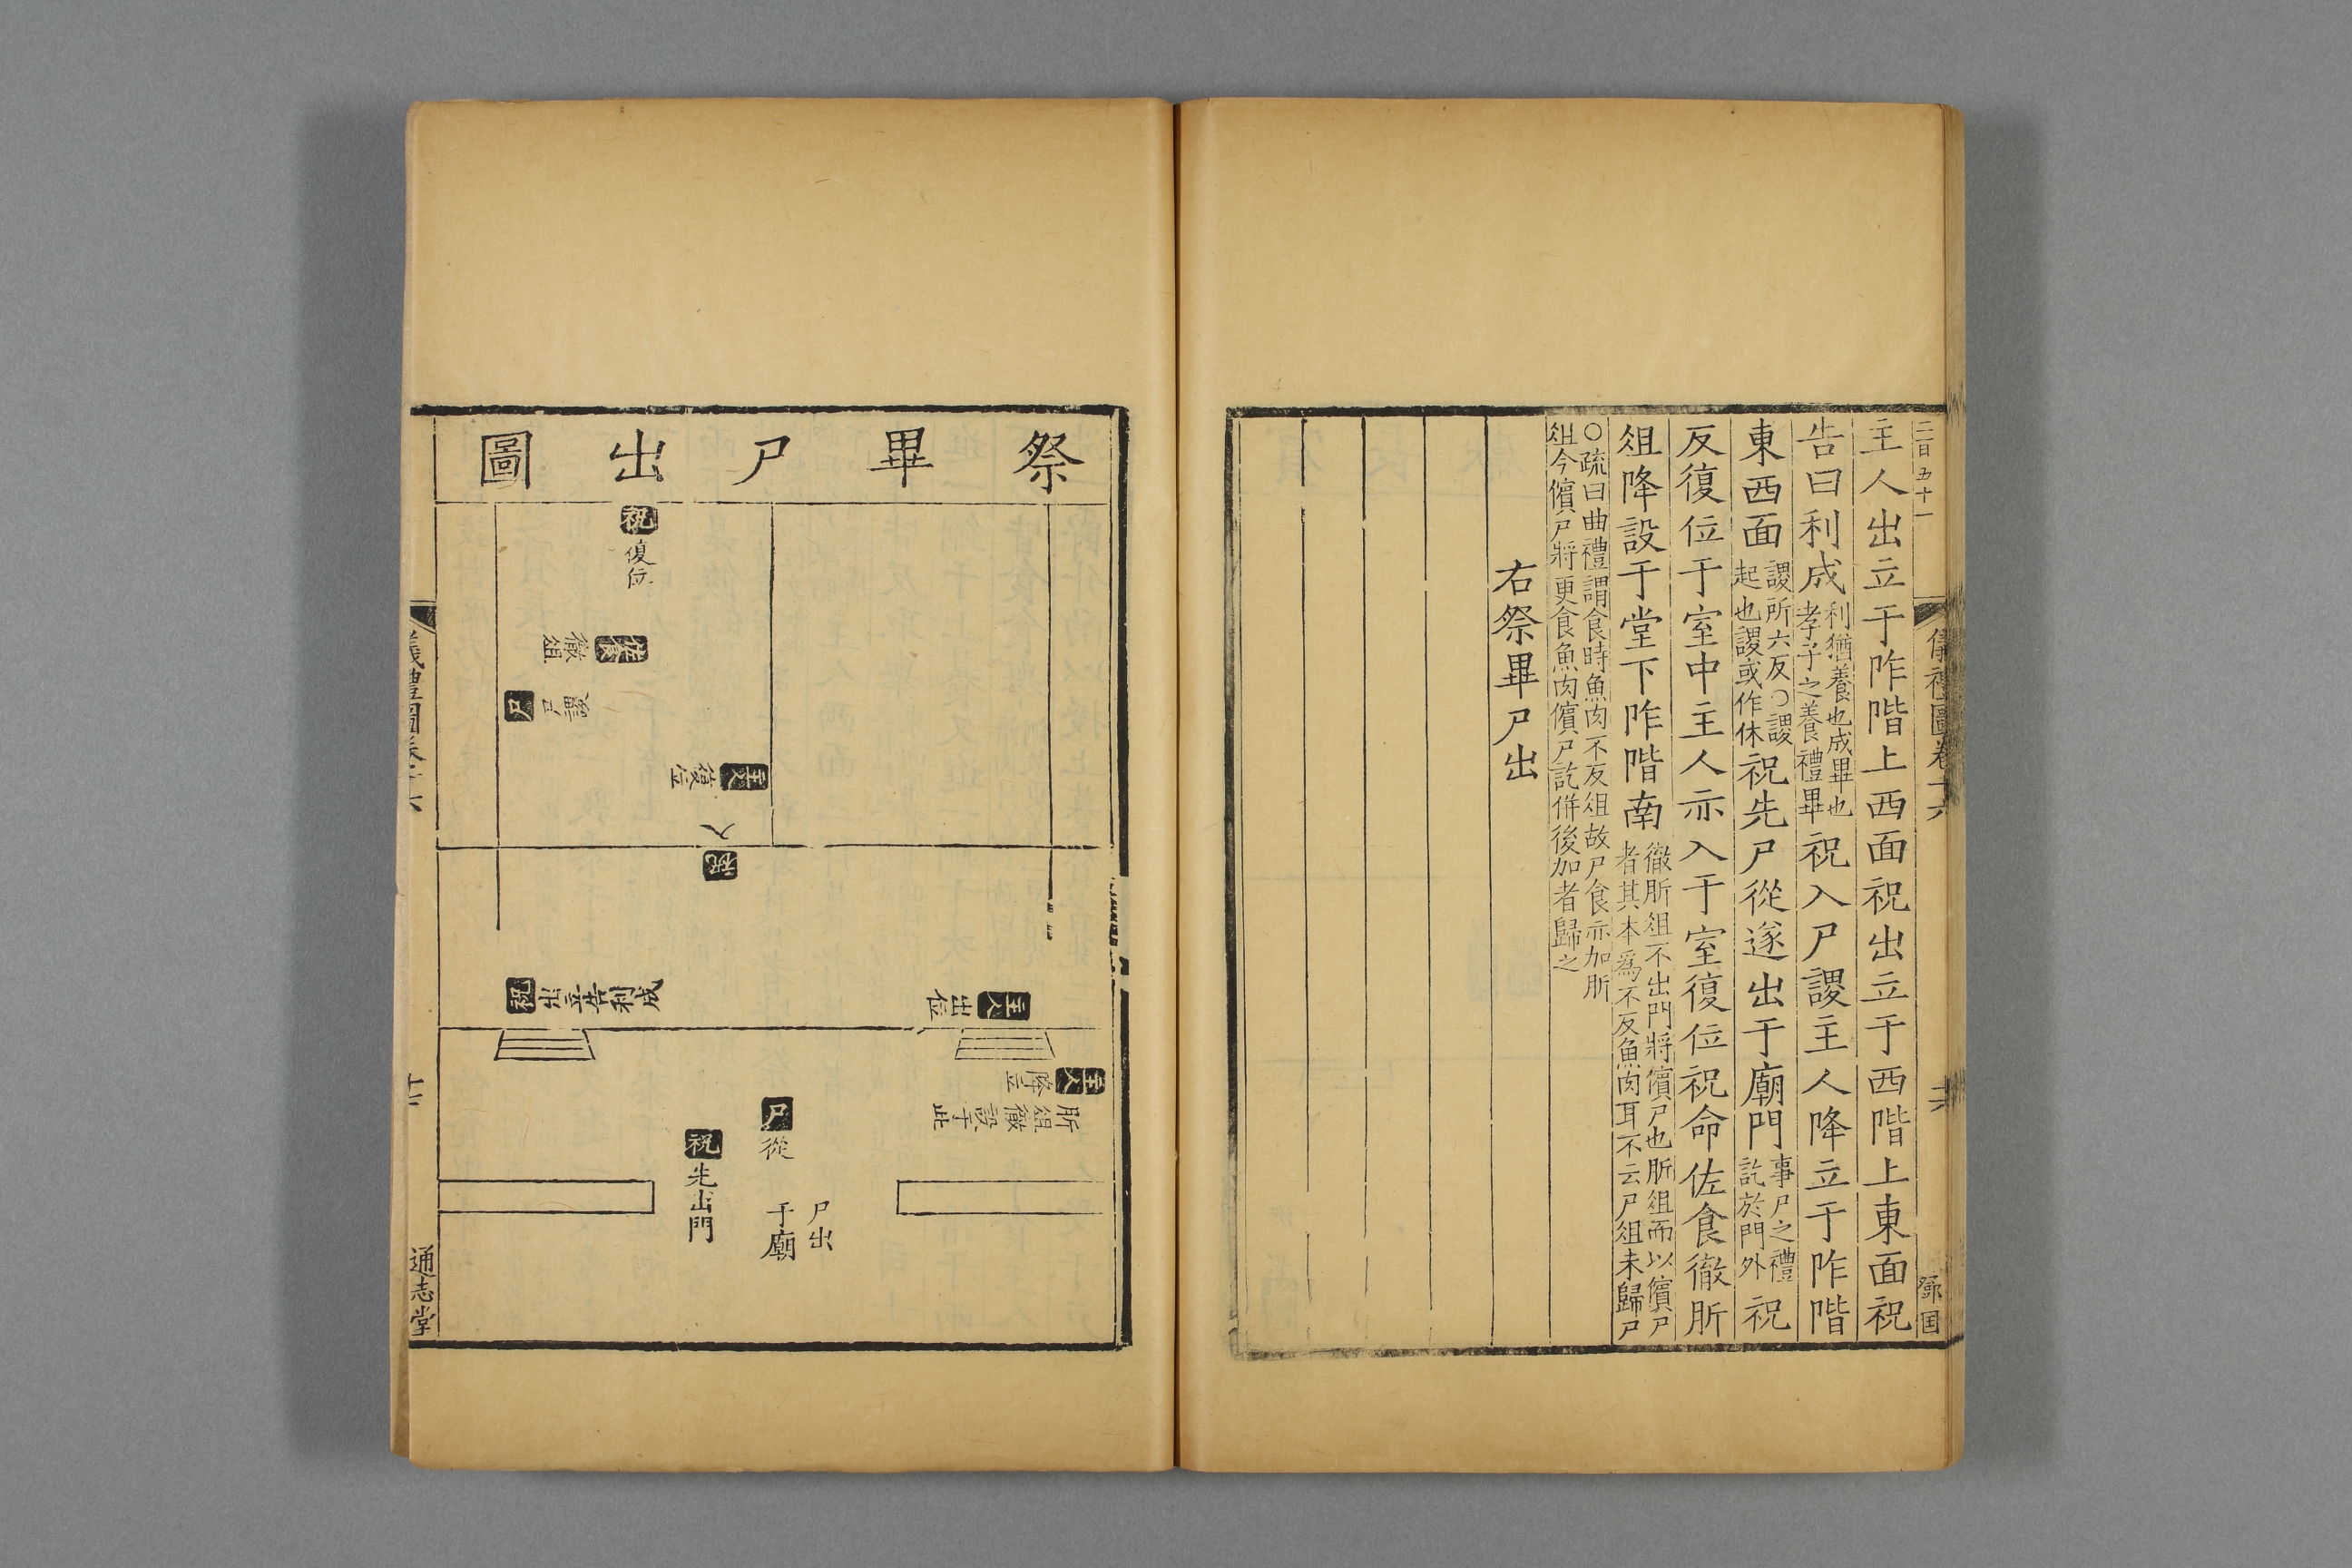 二百五十一
儀禮圖卷十六
主人出立于阼階上西面祝出立于西階上東面祝
告曰利成
利猶養也成畢也
孝子之養禮畢
祝入尸謖主人降立于阼階
東西面
謖所六反○謖
起也謖或作休
祝先尸從遂出于廟門
事尸之禮
訖於門外
祝
反復位于室中主人亦入于室復位祝命佐食徹肵
俎降設于堂下阼階南
徹肵俎不出門將儐尸也肵俎而以儐尸
者其本為不反魚肉耳不云尸俎未歸尸
○疏曰曲禮謂食時魚肉不反俎故尸食亦加肵
俎今儐尸將更食魚肉儐尸訖併後加者歸之
右祭畢尸出
祭畢尸出圖
祝復位
佐食徹俎
尸
主人復位
祝入
祝出立告利成
主人出位
主人降立
肵俎徹設于此
尸從
祝先出門
尸出
于廟
儀禮圖卷十六
通志堂